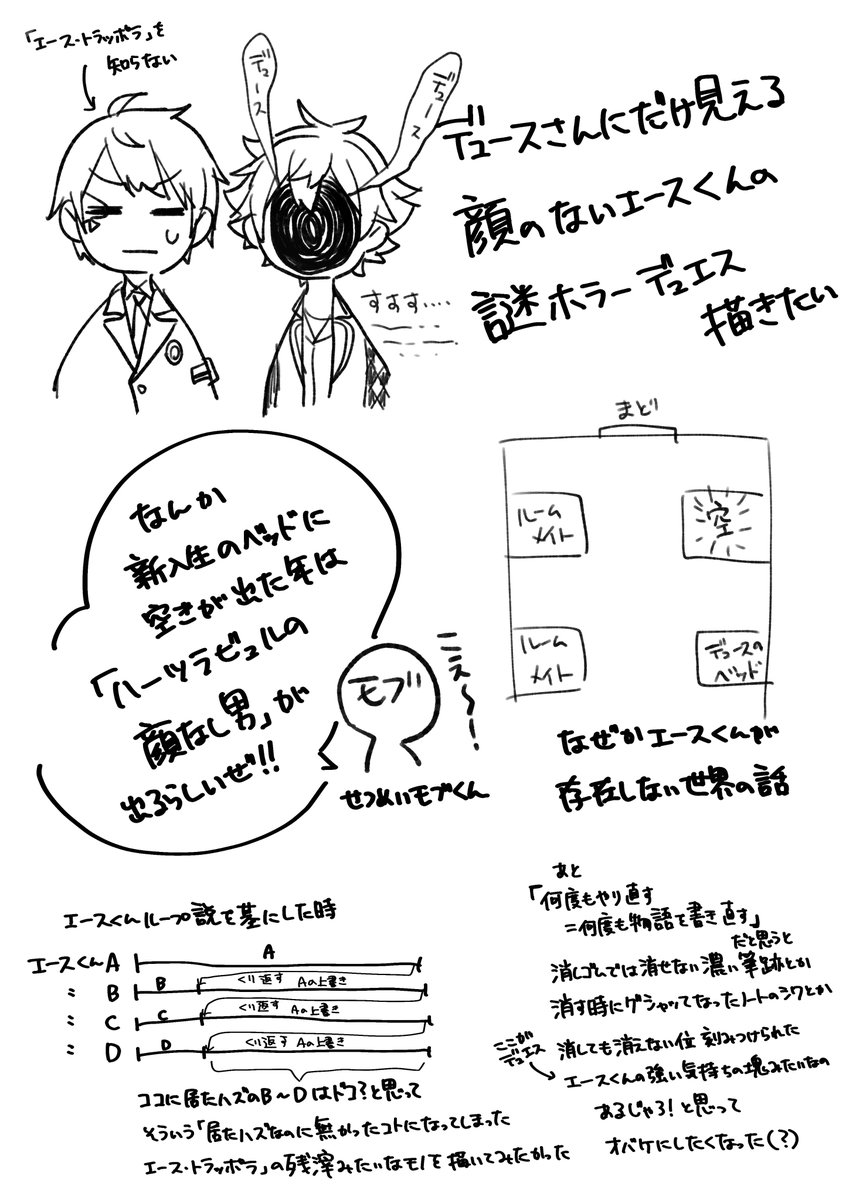 「エース・トラッポラ」を
知らない
デュース
デュース
デュースさんにだけ見える
顔のないエースくんの
謎ホラーデュエス
描きたい
すすす‥‥
なんか
新入生のベッドに
空きが出た年は
「ハーツラビュルの
顔なし男」が
出るらしいぜ!!
モブ
こえ〜!
せつめいモブくん
まど
ルーム
メイト
空
ルーム
メイト
デュースの
ベッド
なぜかエースくんが
存在しない世界の話
エースくんループ説を基にした時
エースくんA A
〃 B B くり返す Aの上書き
〃 C C くり返す Aの上書き
〃 D D くり返す Aの上書き
ココに居たハズのB〜Dはドコ?と思って
そういう「居たハズなのに無かったコトになってしまった
エース・トラッポラ」の残滓みたいなモノを描いてみたかった
あと
「何度もやり直す
=何度も物語を書き直す」
だと思うと
消しゴムでは消せない濃い筆跡とか
消す時にグシャッてなったノートのシワとか
ここが
デュエス
消しても消えない位刻みつけられた
エースくんの強い気持ちの塊みたいなの
あるじゃろ!と思って
オバケにしたくなった(?)